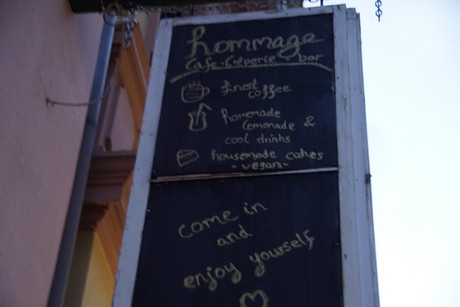 hommage
Cafe - Crêperie - bar
finest
coffee
homemade
lemonade &
cool drinks
housemade cakes
- vegan -
come in
and
enjoy yourself